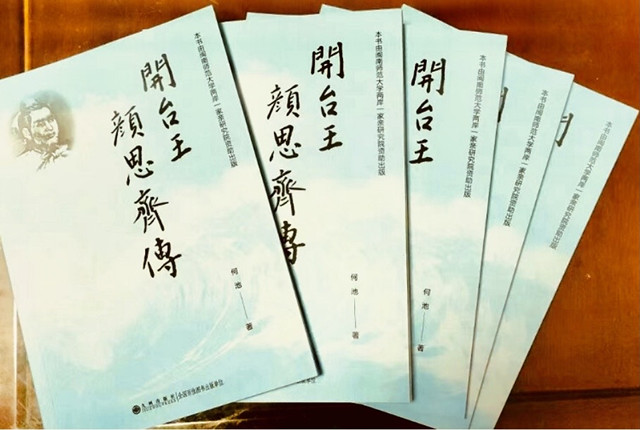 本书由闽南师范大学两岸一家亲研究院资助出版
開台王
顔思齊傳
何池——著
九州出版社
全国百佳图书出版单位
本书由闽南师范大学两岸一家亲研究院资助出版
開台王
顔思齊傳
何池——著
本书由闽南师范大学两岸一家亲研究院资助出版
開台王
何池——著
本书由闽南师范大学两岸一家亲研究院资助出版
何池——著
本书由闽南师范大学两岸一家亲研究院资助出版
何池——著